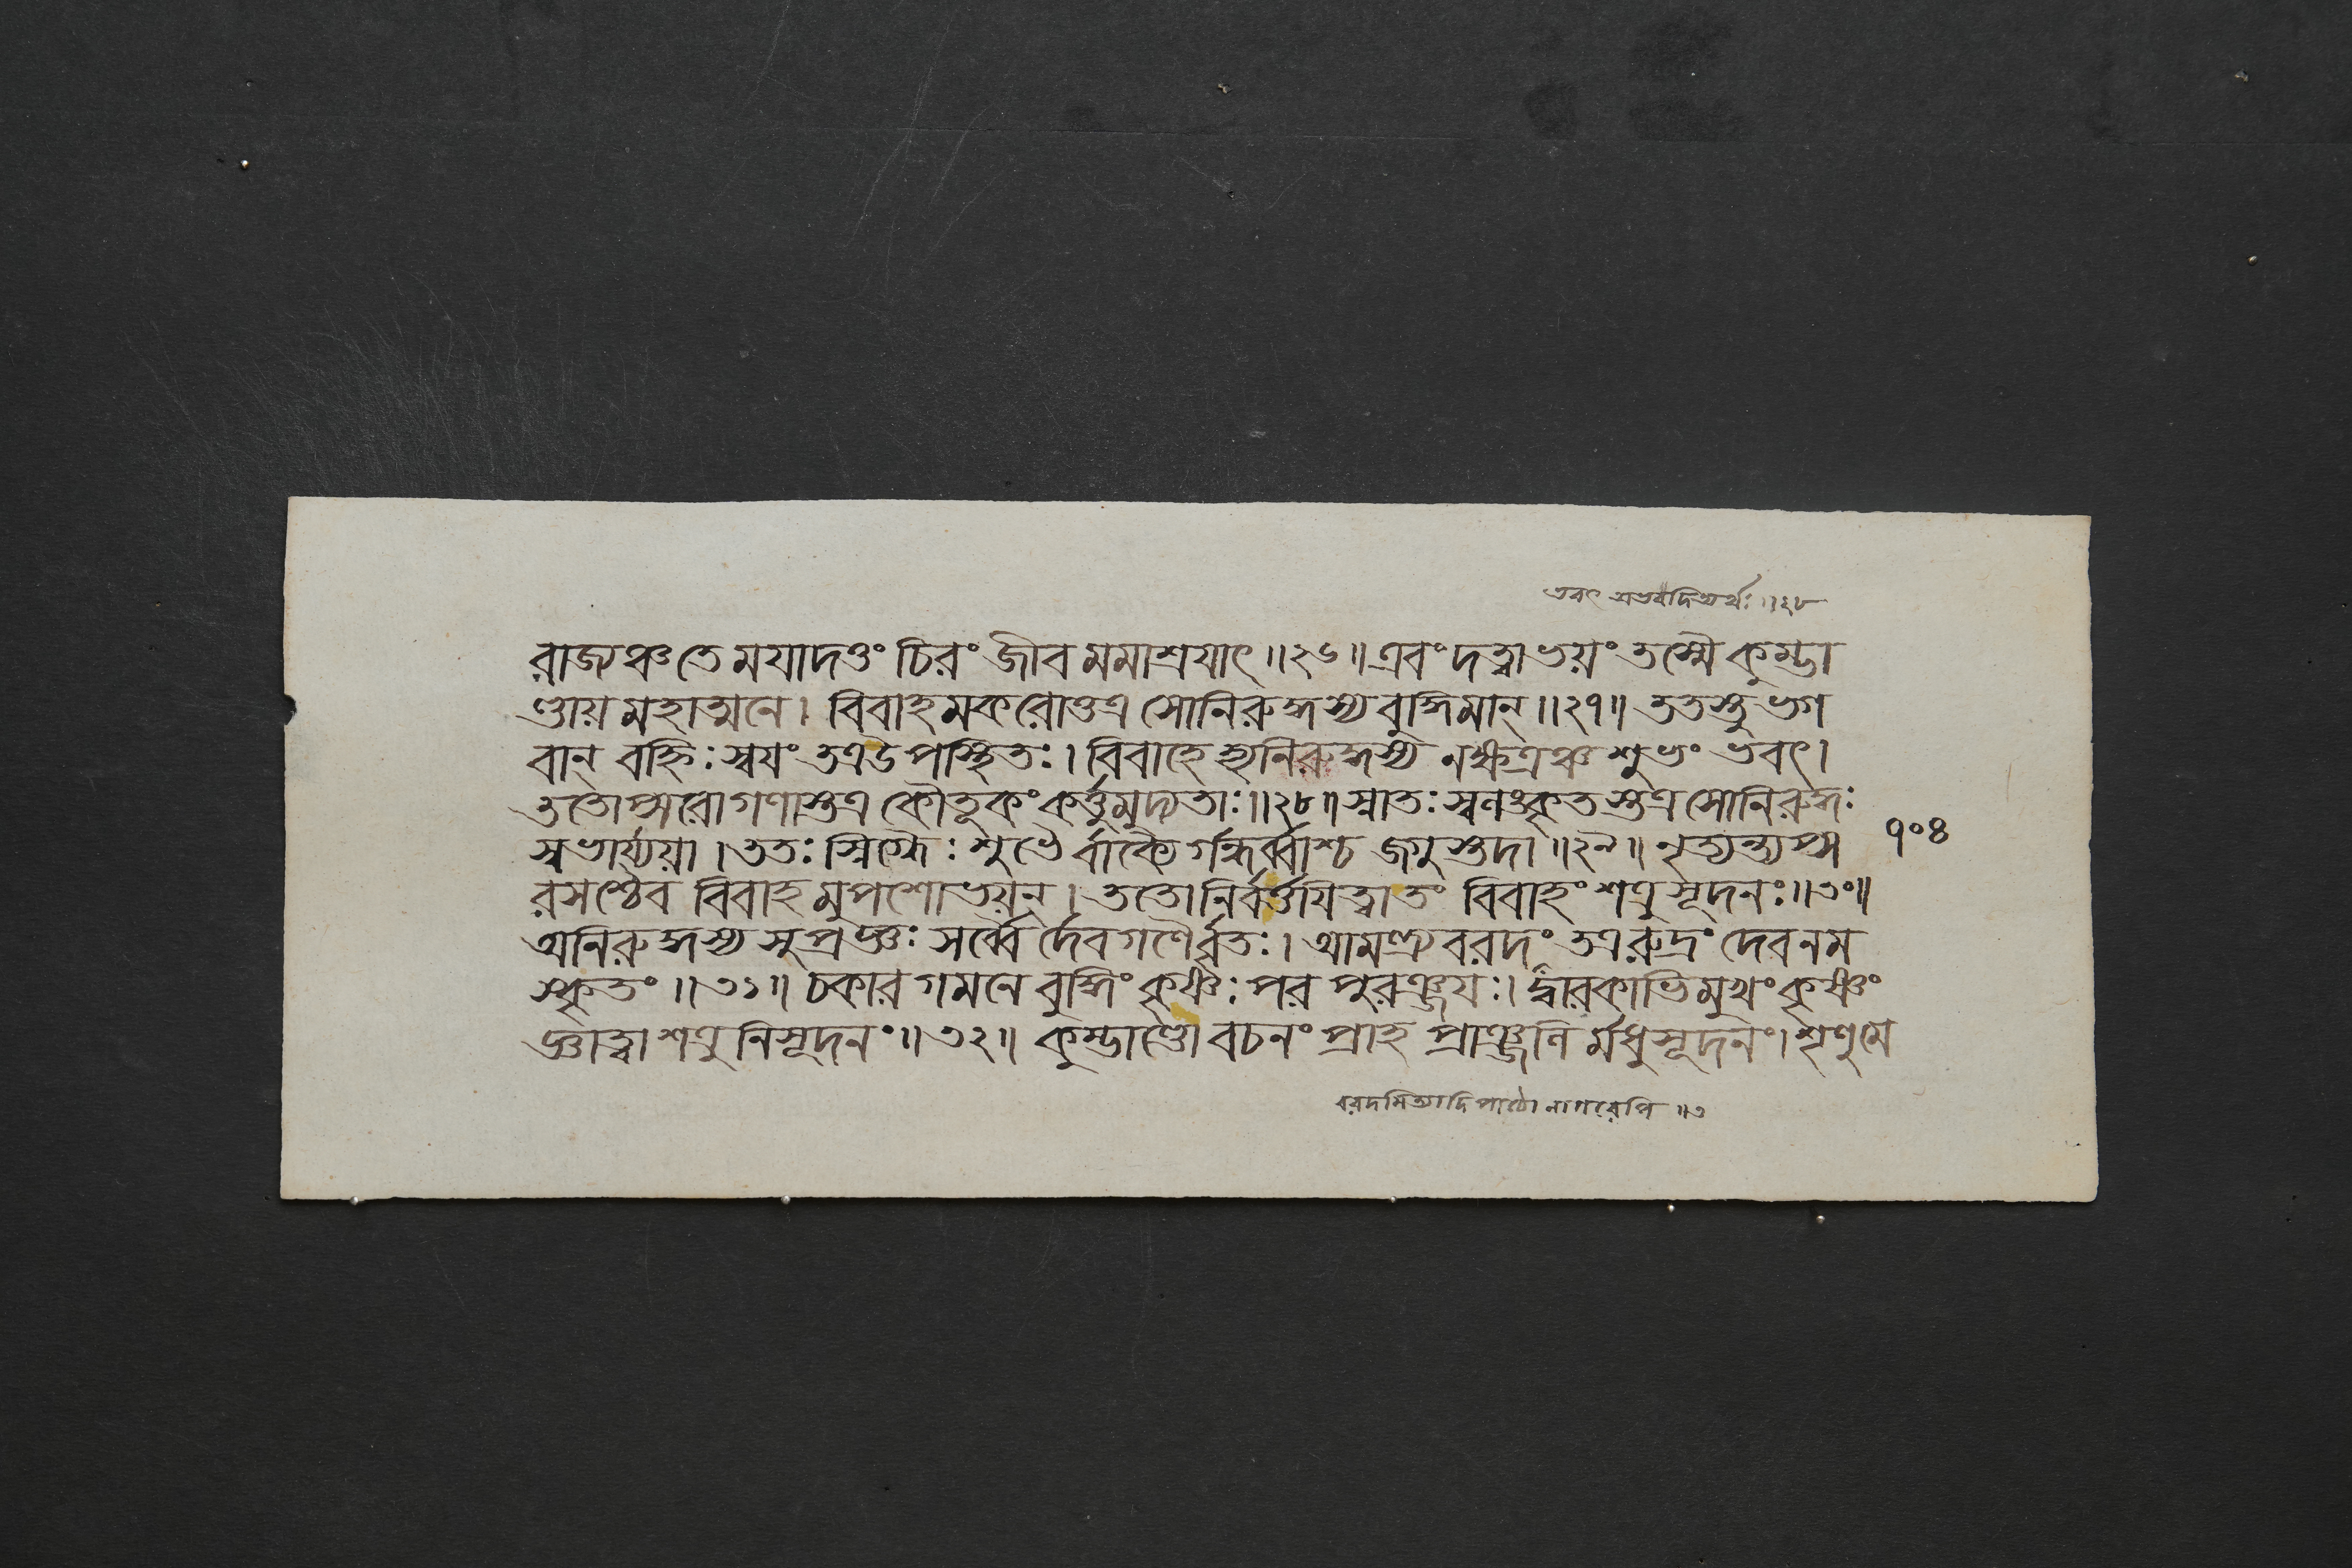 ভবৎ অভবদিত্যর্থঃ ॥২৮
রাজ্যঞ্চ তে ময়াদত্তং চিরং জীব মমাশ্রয়াৎ ॥২৬॥ এবং দত্ত্বাভয়ং তস্মৈ কুম্ভা
ণ্ডায় মহাত্মনে। বিবাহমকরোত্তত্র সোনিরুদ্ধস্য বুদ্ধিমান্ ॥২৭॥ ততস্তু ভগ
বান্ বহ্নিঃ স্বয়ং তত্র উপস্থিতঃ। বিবাহে হ্যনিরুদ্ধস্য নক্ষত্রঞ্চ শুভং ভবৎ।
ততোপ্সরোগণাস্তত্র কৌতুকং কর্ত্তুমুদ্যতাঃ ॥২৮॥ স্নাতঃ স্বলংকৃতস্তত্র সোনিরুদ্ধঃ
স্বভার্য্যয়া। ততঃ স্নিগ্ধৈঃ শুভৈর্বাক্যৈর্গন্ধর্ব্বাশ্চ জগুস্তদা ॥২৯॥ নৃত্যন্ত্যপ্স
৭০৪
রসশ্চৈব বিবাহমুপশোভয়ন্। ততো নির্বর্ত্তয়িত্বা তং বিবাহং শত্রুসূদনঃ ॥৩০॥
অনিরুদ্ধস্য সুপ্রজ্ঞঃ সর্ব্বৈর্দেবগণৈর্বৃতঃ। আমন্ত্র্য বরদং তত্র রুদ্রং দেবনম
স্কৃতং ॥৩১॥ চকার গমনে বুদ্ধিং কৃষ্ণঃ পরপুরঞ্জয়ঃ। দ্বারকাভিমুখং কৃষ্ণং
জ্ঞাত্বা শত্রুনিসূদনং ॥৩২॥ কুম্ভাণ্ডো বচনং প্রাহ প্রাঞ্জলির্মধুসূদনং। শৃণু মে
বরদমিত্যাদি পাঠো নাগরেপি ॥৩